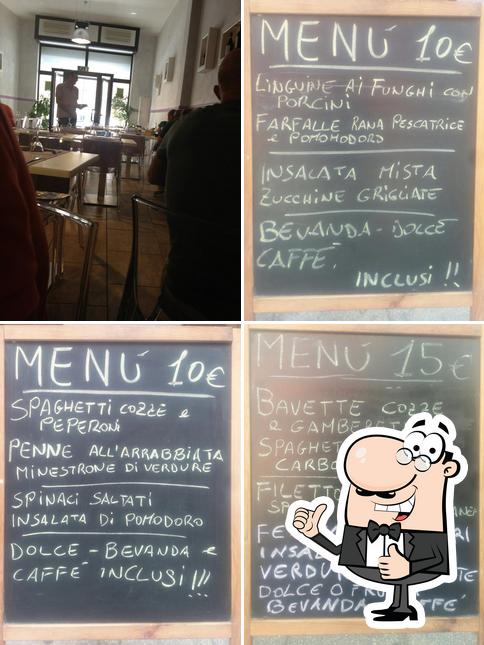 MENÚ 10€
LINGUINE AI FUNGHI CON
PORCINI
FARFALLE RANA PESCATRICE
e POMOMODORO
INSALATA MISTA
ZUCCHINE GRIGLIATE
BEVANDA - DOLCE
CAFFÉ
INCLUSI !!
MENÚ 10€
SPAGHETTI COZZE e
PEPERONI
PENNE ALL'ARRABBIATA
MINESTRONE DI VERDURE
SPINACI SALTATI
INSALATA DI POMODORO
DOLCE - BEVANDA e
CAFFÉ INCLUSI !!!
MENÚ 15€
BAVETTE COZZE
e
DOLCE O
BEVANDA